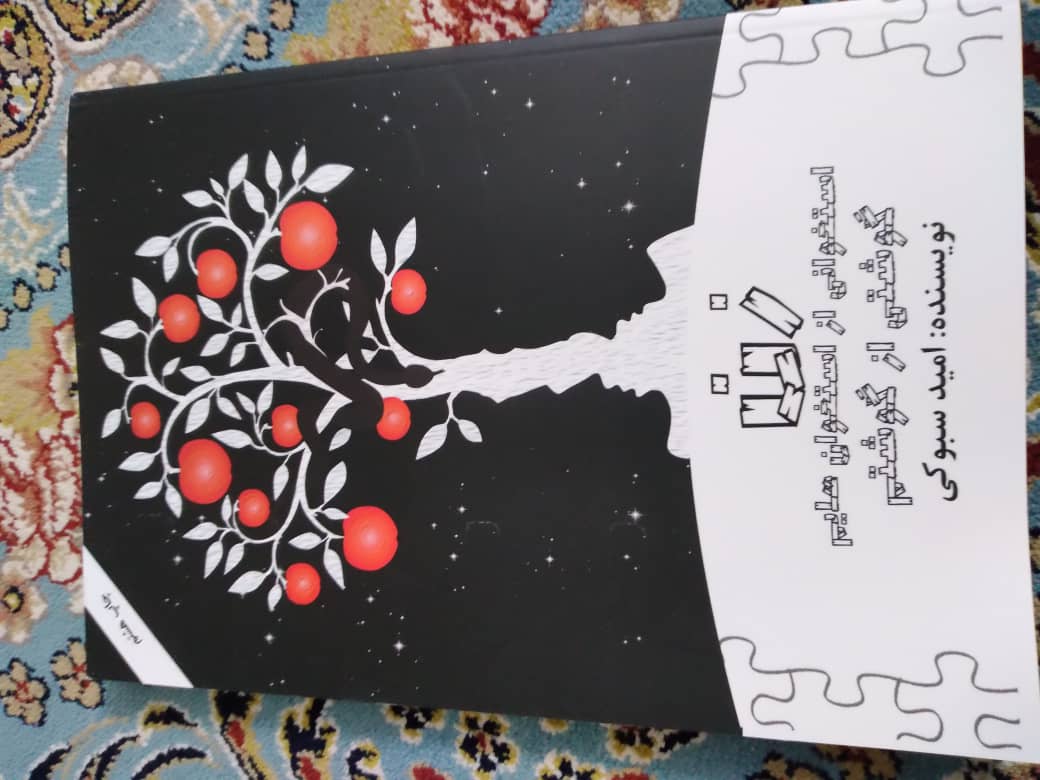 استخوانی از استخوان هایم
گوشتی از گوشتم
نویسنده: امید سبوکی
چاپ هشتم